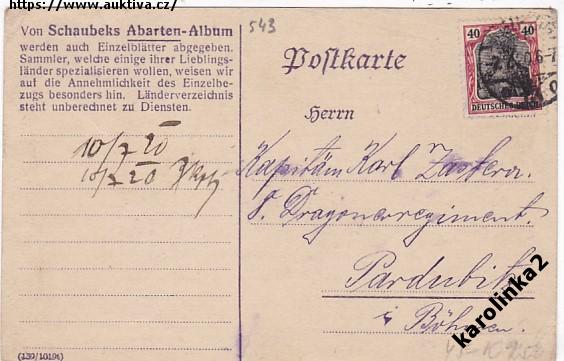 https://www.auktiva.cz/
Von Schaubeks Abarten-Album
werden auch Einzelblätter abgegeben.
Sammler, welche einige ihrer Lieblings-
länder spezialisieren wollen, weisen wir
auf die Annehmlichkeit des Einzelbe-
zugs besonders hin. Länderverzeichnis
steht unberechnet zu Diensten.
543
Postkarte
40 40
DEUTSCHES REICH
Herrn
Kapitän Karl Zastera.
Dragonerregiment.
Pardubitz
i Böhmen.
10/7 20
10/7 20
(139/10194)
karolinka2